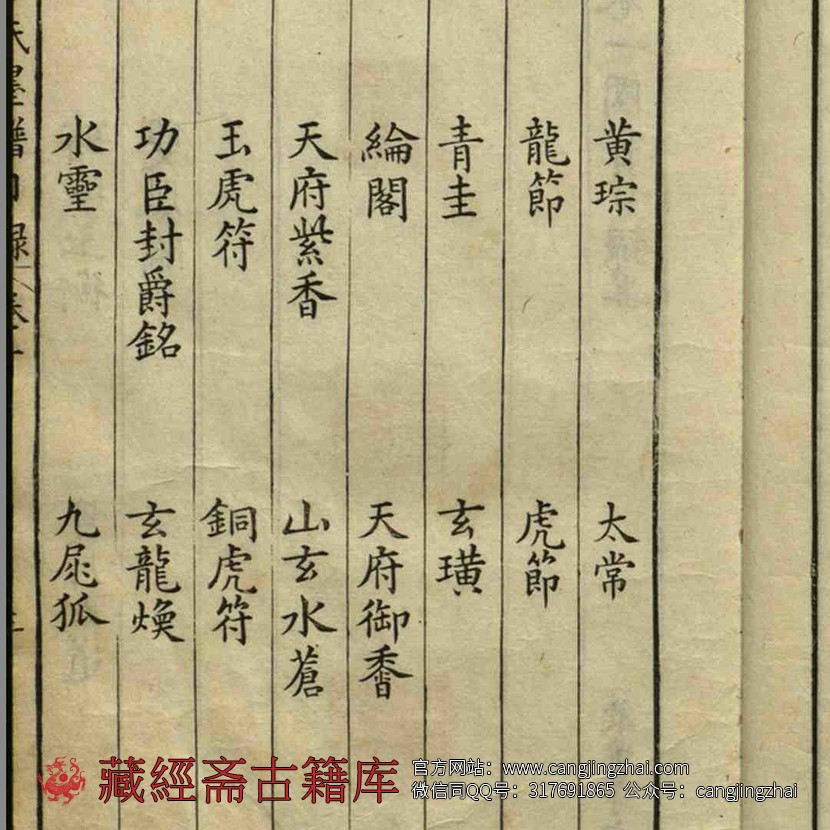 黄琮 太常
龍節 虎節
青圭 玄璜
綸閣 天府御香
天府紫香 山玄水蒼
玉虎符 銅虎符
功臣封爵銘 玄龍煥
水靈 九尾狐
藏經斋古籍库
官方网站：www.cangjingzhai.com
微信同QQ号：317691865 公众号：cangjingzhai